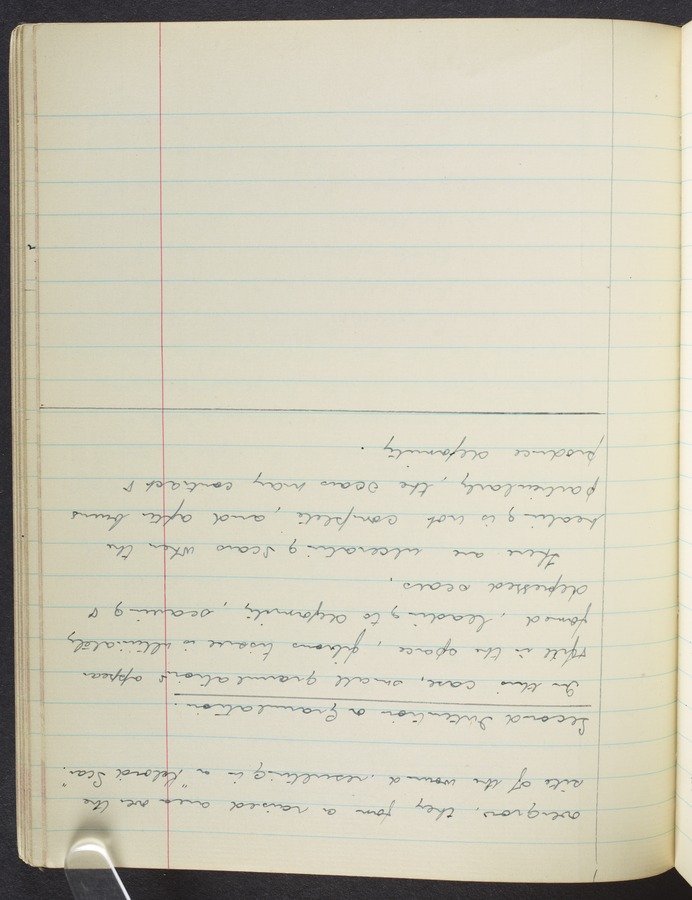 overgrow. they form a raised area over the
site of the wound, resulting in a "Keloid Scar."
Second Intention or Granulation:
In this case, small granulations appear
& fill in the space, fibrous tissue is ultimately
formed, leading to deformity, scarring &
depressed scars.
there are ulcerating scars when the
healing is not complete, and after burns
particularly, the scars may contract &
produce deformity.